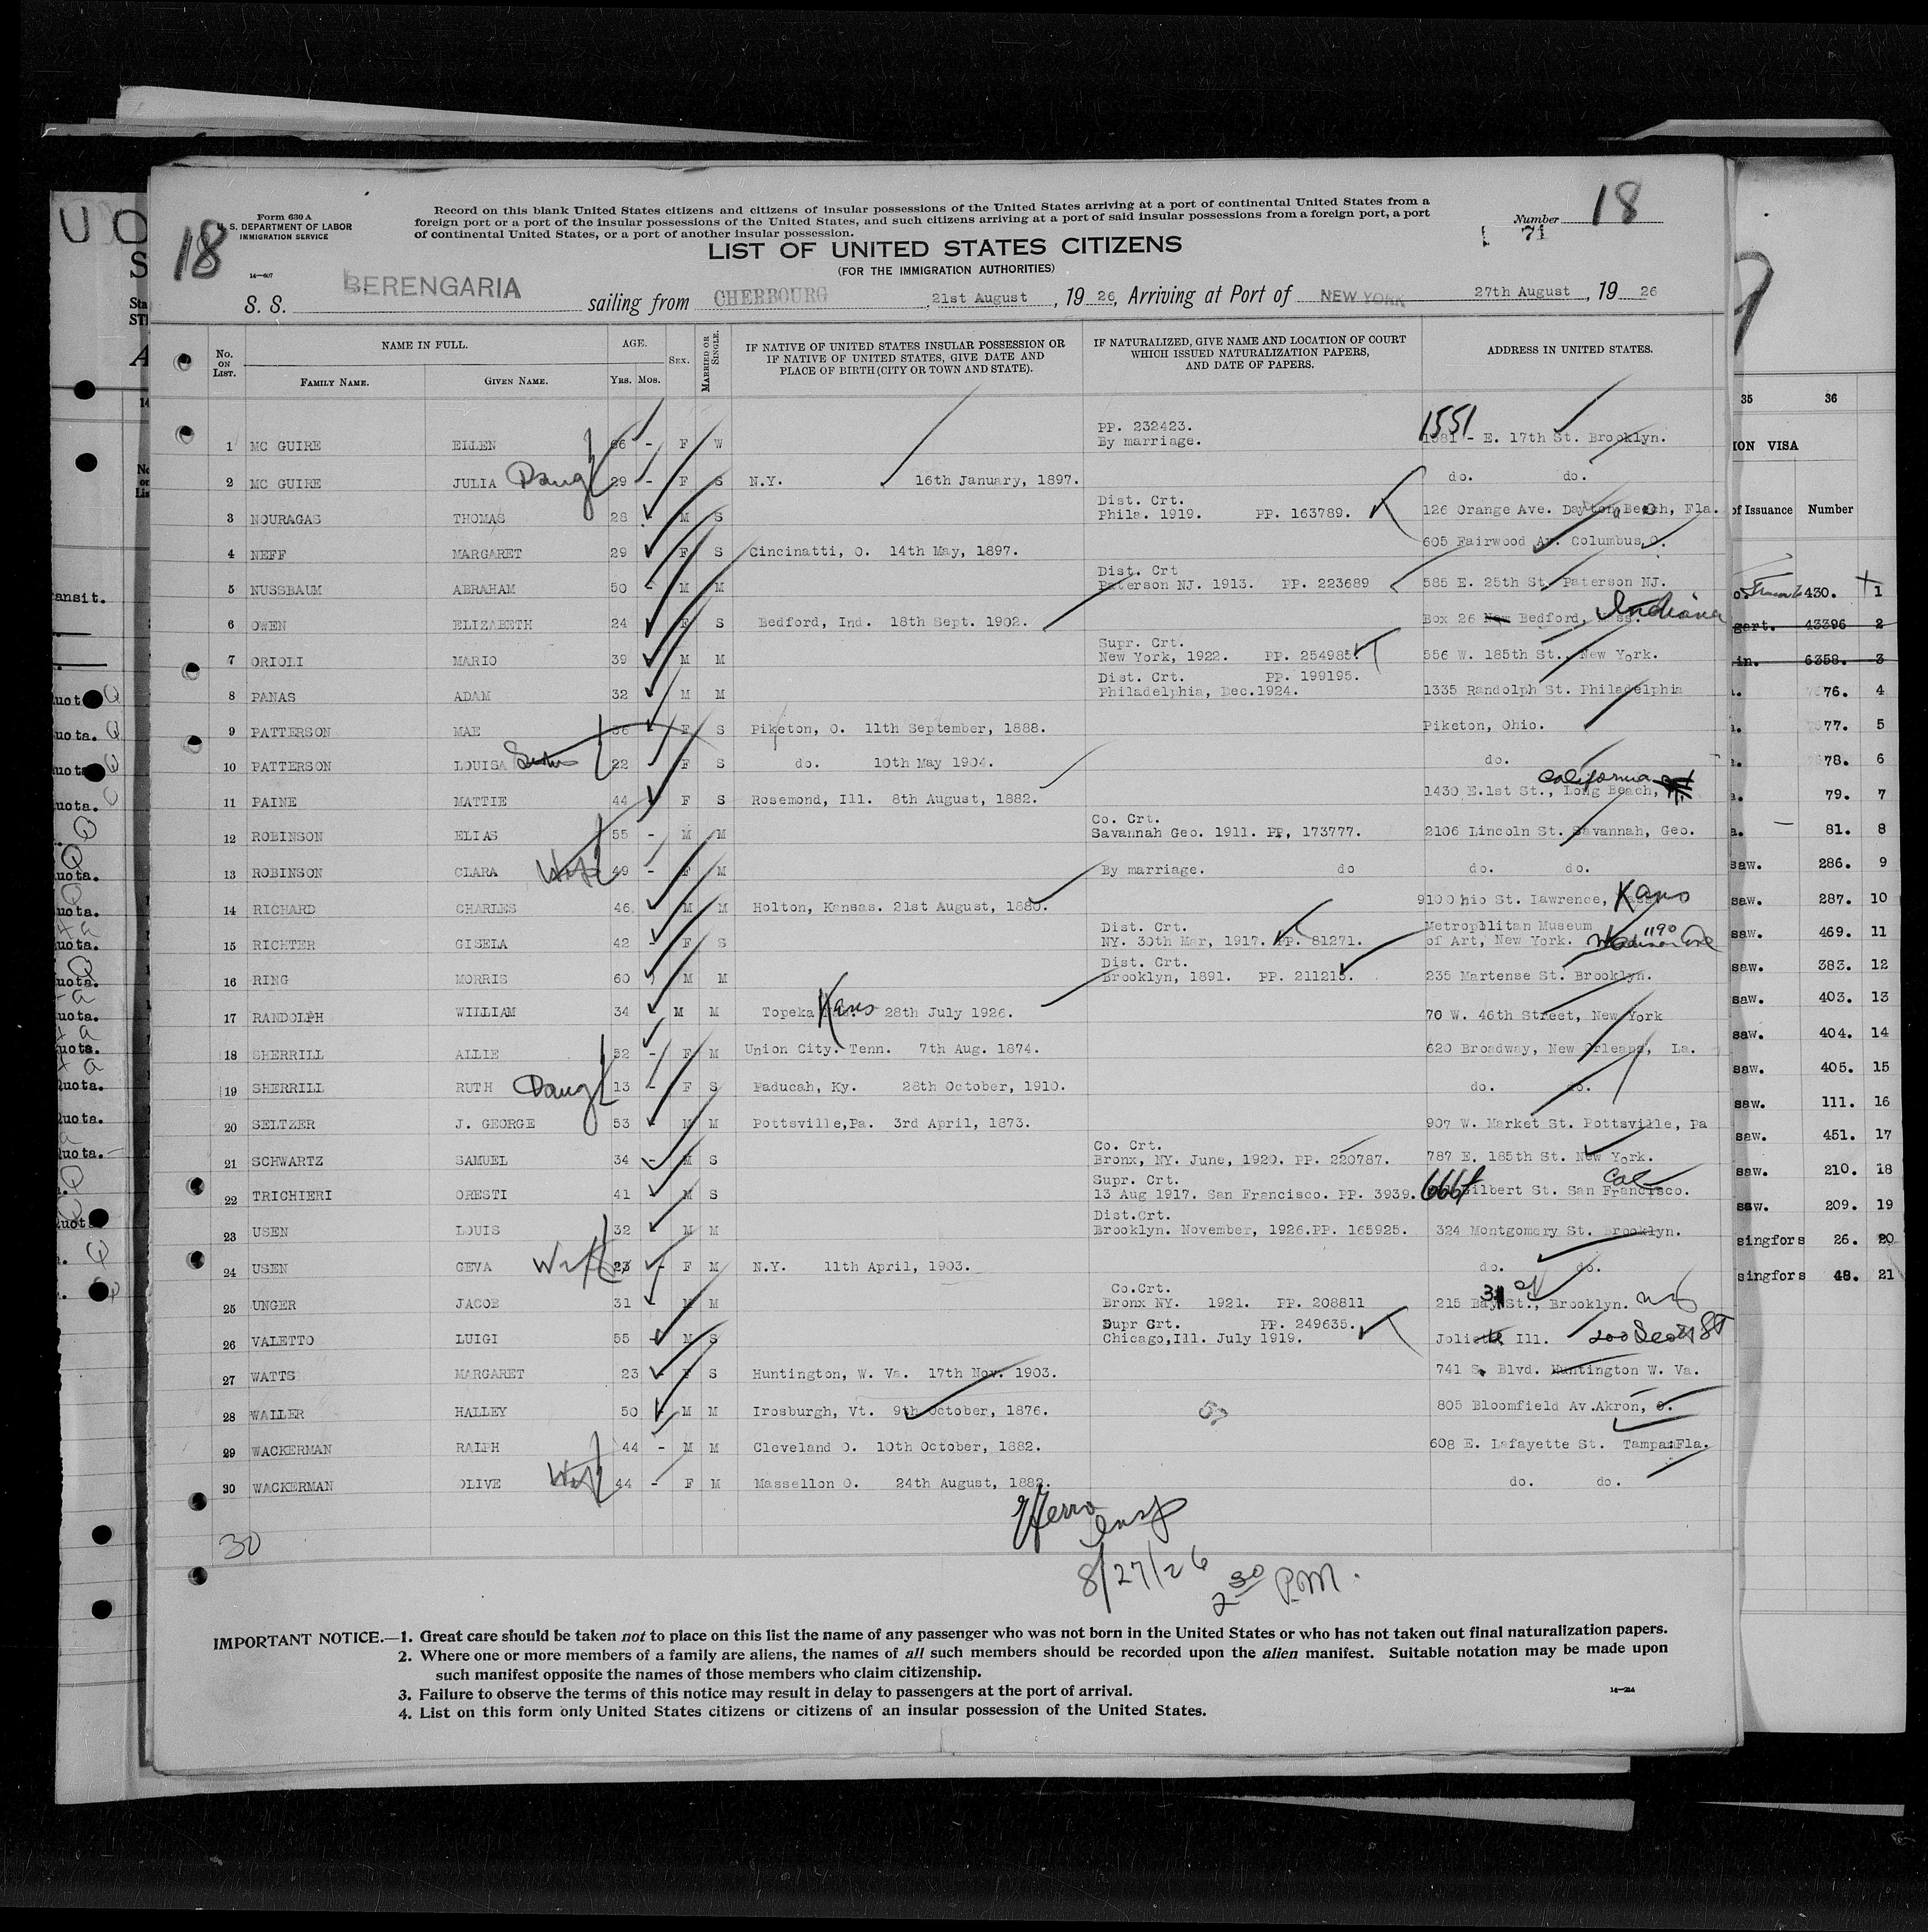 18
Form 630 A
U. S. DEPARTMENT OF LABOR
IMMIGRATION SERVICE
14—607
Record on this blank United States citizens and citizens of insular possessions of the United States arriving at a port of continental United States from a
foreign port or a port of the insular possessions of the United States, and such citizens arriving at a port of said insular possessions from a foreign port, a port
of continental United States, or a port of another insular possession.
Number 18
71
LIST OF UNITED STATES CITIZENS
(FOR THE IMMIGRATION AUTHORITIES)
S. S. BERENGARIA sailing from CHERBOURG 21st August, 19 26, Arriving at Port of NEW YORK 27th August, 19 26
No. ON LIST. NAME IN FULL. FAMILY NAME. GIVEN NAME. AGE. YRS. MOS. SEX. MARRIED OR SINGLE. IF NATIVE OF UNITED STATES INSULAR POSSESSION OR IF NATIVE OF UNITED STATES, GIVE DATE AND PLACE OF BIRTH (CITY OR TOWN AND STATE). IF NATURALIZED, GIVE NAME AND LOCATION OF COURT WHICH ISSUED NATURALIZATION PAPERS, AND DATE OF PAPERS. ADDRESS IN UNITED STATES.
1 MC GUIRE ELLEN 66 - F W PP. 232423. By marriage. 1551 - E. 17th St. Brooklyn.
2 MC GUIRE JULIA Daug 29 - F S N.Y. 16th January, 1897. do. do.
3 NOURAGAS THOMAS 28 - M S Dist. Crt. Phila. 1919. PP. 163789. 126 Orange Ave. Dayton Beach, Fla.
4 NEFF MARGARET 29 F S Cincinatti, O. 14th May, 1897. 605 Fairwood Av. Columbus, O.
5 NUSSBAUM ABRAHAM 50 - M M Dist. Crt Paterson NJ. 1913. PP. 223689 585 E. 25th St. Paterson NJ.
6 OWEN ELIZABETH 24 F S Bedford, Ind. 18th Sept. 1902. Box 26 New Bedford, Indiana
7 ORIOLI MARIO 39 M M Supr. Crt. New York, 1922. PP. 254985. 556 W. 185th St., New York.
8 PANAS ADAM 32 M M Dist. Crt. PP. 199195. Philadelphia, Dec.1924. 1335 Randolph St. Philadelphia
9 PATTERSON MAE F S Piketon, O. 11th September, 1888. Piketon, Ohio.
10 PATTERSON LOUISA 22 F S do. 10th May 1904. do.
11 PAINE MATTIE 44 F S Rosemond, Ill. 8th August, 1882. 1430 E.1st St., Long Beach, California
12 ROBINSON ELIAS 55 - M M Co. Crt. Savannah Geo. 1911. PP, 173777. 2106 Lincoln St. Savannah, Geo.
13 ROBINSON CLARA Wife 49 - F M By marriage. do do. do.
14 RICHARD CHARLES 46 M M Holton, Kansas. 21st August, 1880. 9100 hio St. Lawrence, Kans
15 RICHTER GISELA 42 - F S Dist. Crt. NY. 30th Mar, 1917. PP. 81271. Metropllitan Museum of Art, New York. 1190 Madison Ave
16 RING MORRIS 60 M M Dist. Crt. Brooklyn, 1891. PP. 211213. 235 Martense St. Brooklyn.
17 RANDOLPH WILLIAM 34 M M Topeka Kans 28th July 1926. 70 W. 46th Street, New York
18 SHERRILL ALLIE 52 - F M Union City. Tenn. 7th Aug. 1874. 620 Broadway, New Orleans, La.
19 SHERRILL RUTH Daug 13 - F S Paducah, Ky. 28th October, 1910. do. do.
20 SELTZER J. GEORGE 53 M M Pottsville,Pa. 3rd April, 1873. 907 W. Market St. Pottsville, Pa
21 SCHWARTZ SAMUEL 34 - M S Co. Crt. Bronx, NY. June, 1920. PP. 220787. 787 E. 185th St. New York.
22 TRICHIERI ORESTI 41 M S Supr. Crt. 13 Aug 1917. San Francisco. PP. 3939. Gilbert St. San Francisco. Cal
23 USEN LOUIS 32 M M Dist.Crt. Brooklyn. November, 1926.PP. 165925. 324 Montgomery St. Brooklyn.
24 USEN GEVA Wife 23 - F M N.Y. 11th April, 1903. do. do.
25 UNGER JACOB 31 - M M Co.Crt. Bronx NY. 1921. PP. 208811 215 Bay 31 St., Brooklyn.
26 VALETTO LUIGI 55 M S Supr Crt. PP. 249635. Chicago,Ill. July 1919. Joliette Ill. 200 Scott ST
27 WATTS MARGARET 23 F S Huntington, W. Va. 17th Nov. 1903. 741 S. Blvd. Huntington W. Va.
28 WALLER HALLEY 50 - M M Irosburgh, Vt. 9th October, 1876. 805 Bloomfield Av.Akron, O.
29 WACKERMAN RALPH 44 - M M Cleveland O. 10th October, 1882. 608 E. Lafayette St. Tampa:Fla.
30 WACKERMAN OLIVE Wife 44 - F M Massellon O. 24th August, 1882. do. do.
30
Insp
8/27/26
2 30 P.M.
IMPORTANT NOTICE.—1. Great care should be taken not to place on this list the name of any passenger who was not born in the United States or who has not taken out final naturalization papers.
2. Where one or more members of a family are aliens, the names of all such members should be recorded upon the alien manifest. Suitable notation may be made upon
such manifest opposite the names of those members who claim citizenship.
3. Failure to observe the terms of this notice may result in delay to passengers at the port of arrival.
4. List on this form only United States citizens or citizens of an insular possession of the United States.
35 36
ION VISA
of Issuance Number
430. 1
gart. 43396 2
in. 6358. 3
76. 4
77. 5
78. 6
79. 7
81. 8
saw. 286. 9
saw. 287. 10
saw. 469. 11
saw. 383. 12
saw. 403. 13
saw. 404. 14
saw. 405. 15
saw. 111. 16
saw. 451. 17
saw. 210. 18
saw. 209. 19
singfors 26. 20
singfors 48. 21